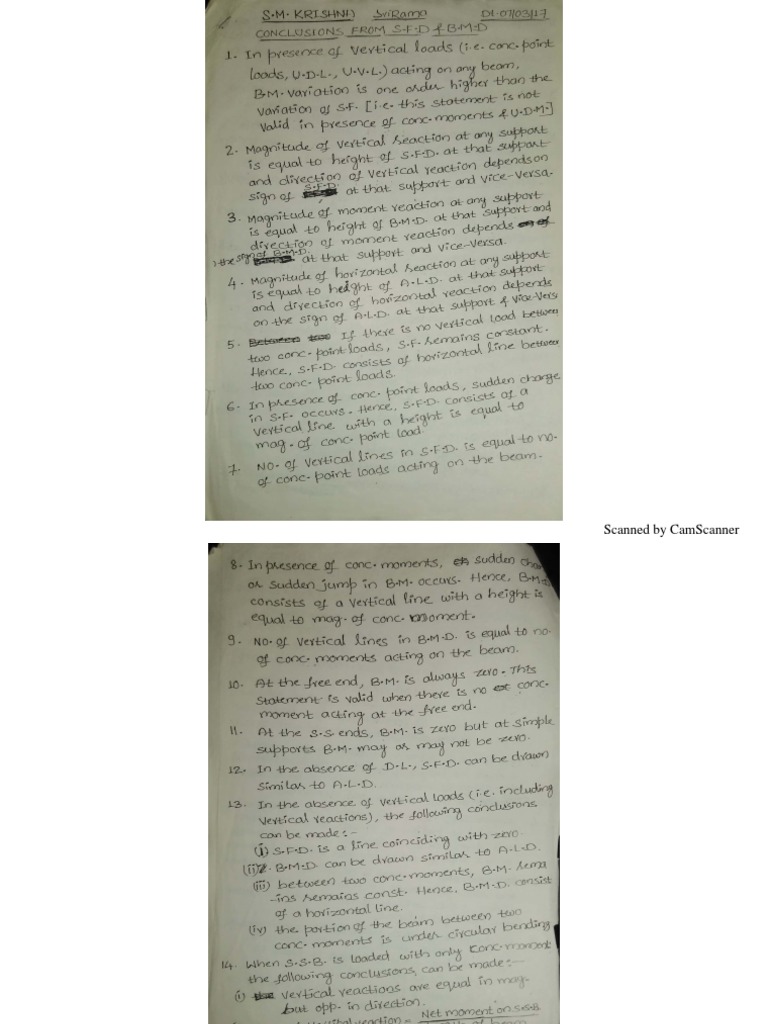 S.M. KRISHNA) SriRama Dt-07/03/17
CONCLUSIONS FROM S.F.D & B.M.D
1. In presence of vertical loads (i.e. conc. point
loads, U.D.L., U.V.L.) acting on any beam,
B.M. variation is one order higher than the
variation of S.F. [i.e. this statement is not
valid in presence of conc. moments & U.D.M.]
2. Magnitude of vertical reaction at any support
is equal to height of S.F.D. at that support
and direction of vertical reaction depends on
sign of S.F.D. at that support and vice-versa.
3. Magnitude of moment reaction at any support
is equal to height of B.M.D. at that support and
direction of moment reaction depends
the sign of B.M.D. at that support and vice-versa.
4. Magnitude of horizontal reaction at any support
is equal to height of A.L.D. at that support
and direction of horizontal reaction depends
on the sign of A.L.D. at that support & vice-vers
5. Between two If there is no vertical load between
two conc. point loads, S.F. remains constant.
Hence, S.F.D. consists of horizontal line between
two conc. point loads.
6. In presence of conc. point loads, sudden change
in S.F. occurs. Hence, S.F.D. consists of a
vertical line with a height is equal to
mag. of conc. point load.
7. No. of vertical lines in S.F.D. is equal to no.
of conc. point loads acting on the beam.
Scanned by CamScanner
8. In presence of conc. moments, sudden chan
or sudden jump in B.M. occurs. Hence, B.M.D.
consists of a vertical line with a height is
equal to mag. of conc. moment.
9. No. of vertical lines in B.M.D. is equal to no.
of conc. moments acting on the beam.
10. At the free end, B.M. is always zero. This
statement is valid when there is no conc.
moment acting at the free end.
11. At the S.S ends, B.M. is zero but at simple
supports B.M. may or may not be zero.
12. In the absence of D.L., S.F.D. can be drawn
similar to A.L.D.
13. In the absence of vertical loads (i.e. including
vertical reactions), the following conclusions
can be made :-
(i) S.F.D. is a line coinciding with zero
(ii) B.M.D. can be drawn similar to A.L.D.
(iii) between two conc. moments, B.M. rema
-ins remains const. Hence, B.M.D. consist
of a horizontal line.
(iv) the portion of the beam between two
conc. moments is under circular bending
14. When S.S.B. is loaded with only conc. moment
the following conclusions can be made :-
(i) vertical reactions are equal in mag.
but opp. in direction.
reaction = Net moment on SSB
of beam